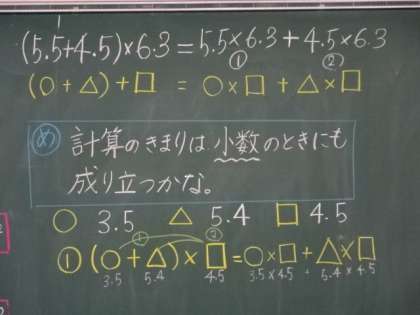 (5.5+4.5)×6.3=5.5×6.3+4.5×6.3
① ②
(○+△)+□ = ○×□+△×□
め 計算のきまりは小数のときにも
成り立つかな。
○ 3.5 △ 5.4 □ 4.5
①(○+△)×□=○×□+△×□
3.5 5.4 4.5 3.5×4.5+5.4×4.5